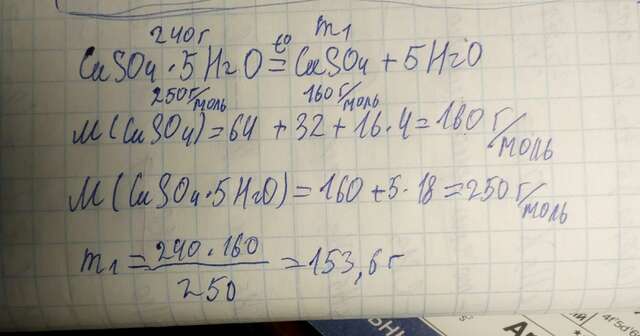 240г m1
CuSO4 · 5H2O =t° CuSO4 + 5H2O
250г/моль 160г/моль
M(CuSO4) = 64 + 32 + 16 · 4 = 160 г/моль
M(CuSO4 · 5H2O) = 160 + 5 · 18 = 250 г/моль
m1 = 240 · 160 / 250 = 153,6 г